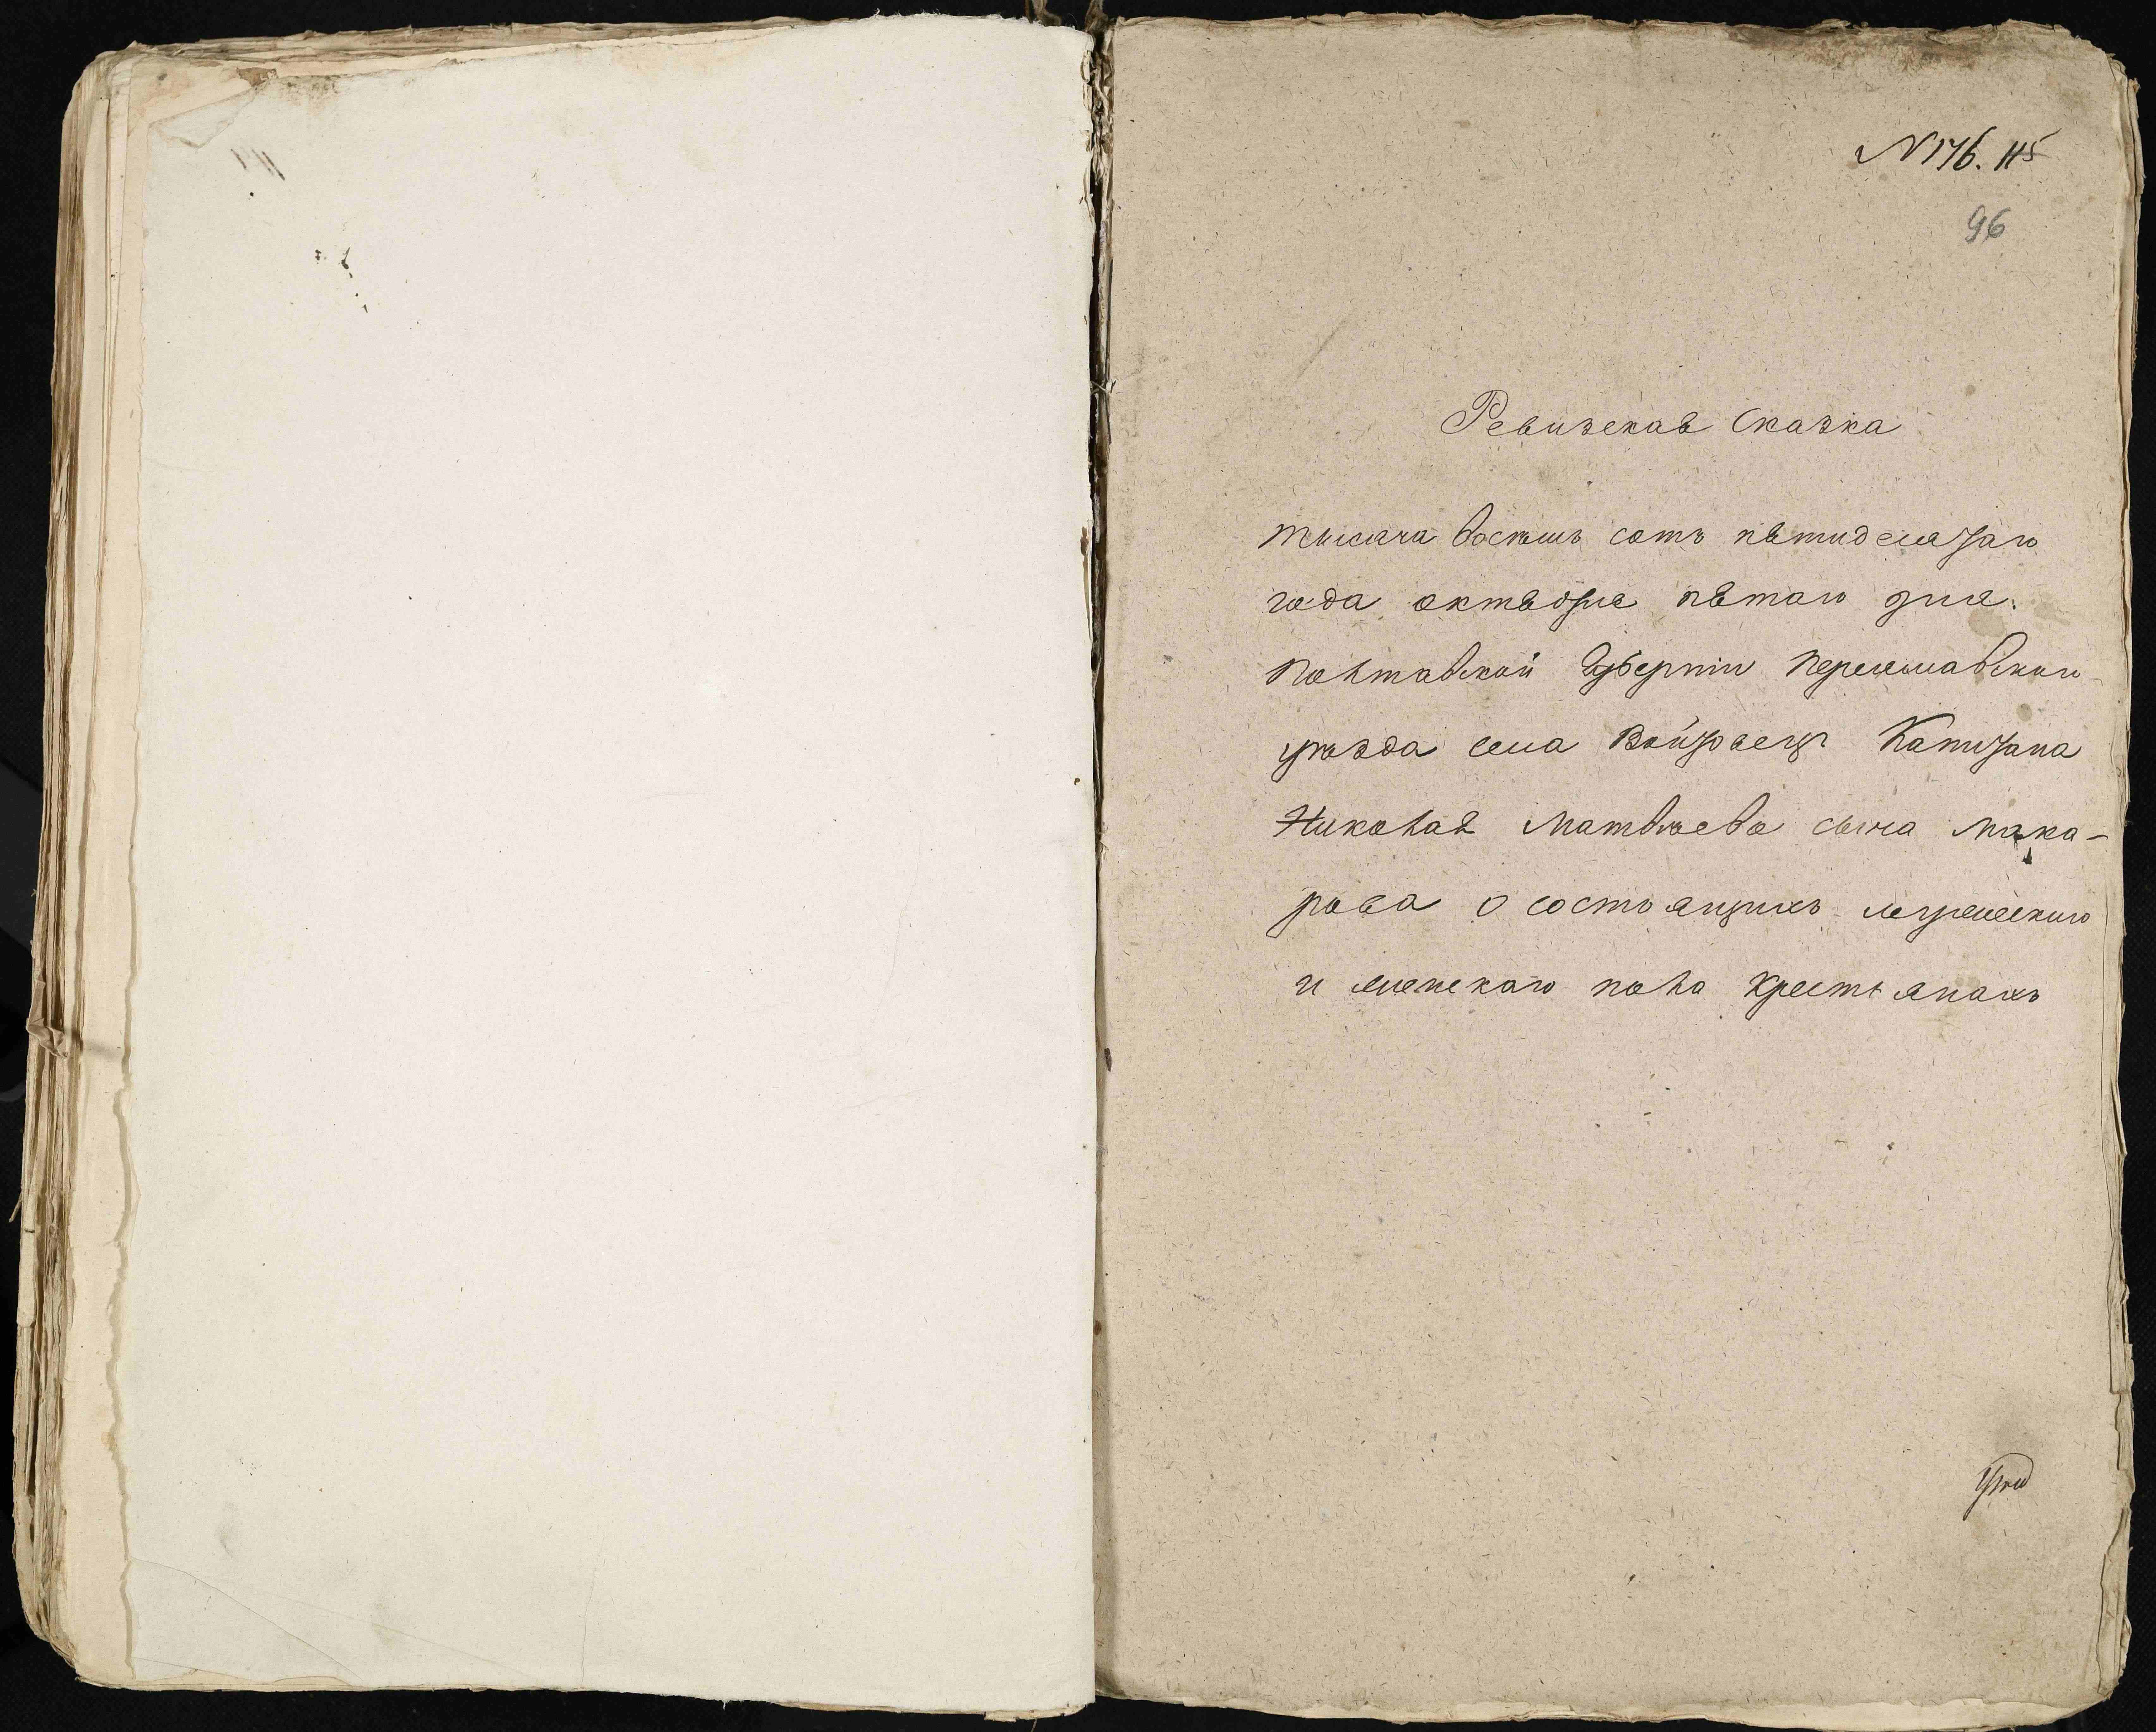 N 176. 115
96
Ревизская Сказка
тысяча восѣмь сотъ пятидесятаго
года октября пятаго дня.
Полтавской Губерніи Переяславскаго
уѣзда села Войтовецъ Капитана
Николая Матвѣева сына Мака-
рова о состоящихъ мужескаго
и женскаго пола Крестьянахъ